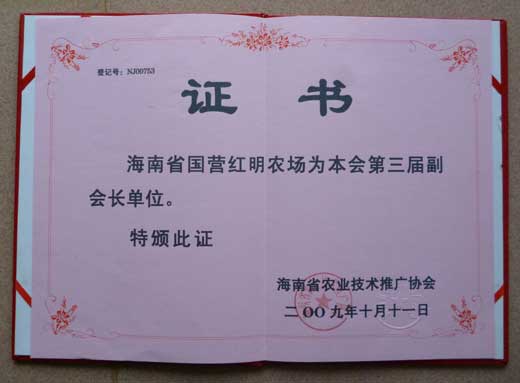 登记号：NJ00753
证 书
海南省国营红明农场为本会第三届副
会长单位。
特颁此证
海南省农业技术推广协会
二OO九年十月十一日